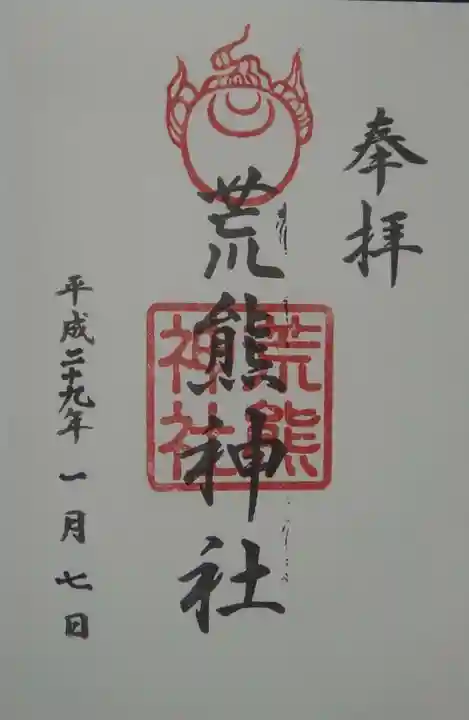 奉拝
荒熊神社
荒熊神社
平成二十九年一月七日